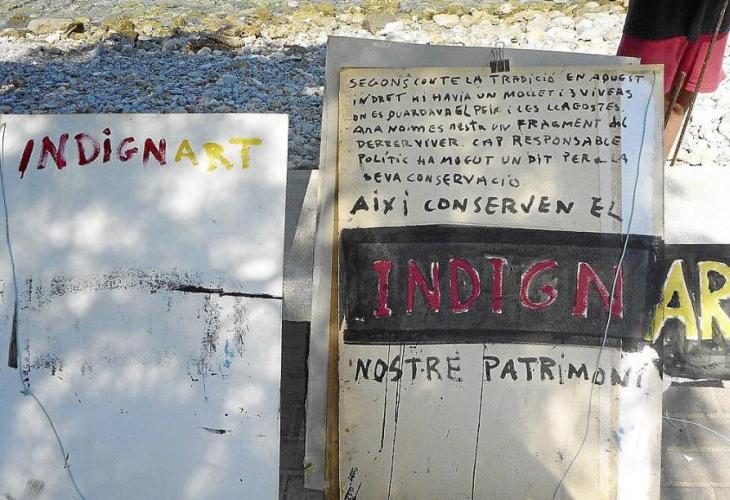 INDIGNART
SEGONS CONTE LA TRADICIÓ EN AQUEST
INDRET HI HAVIA UN MOLLET I 3 VIVERS
ON ES GUARDAVA EL PEIX I LES LLAGOSTES.
ARA NOMES RESTA UN FRAGMENT del
DERRER VIVER. CAP RESPONSABLE
POLÍTIC HA MOGUT UN DIT PER A LA
SEVA CONSERVACIÓ.
AIXI CONSERVEN EL
INDIGNAR
NOSTRE PATRIMONI